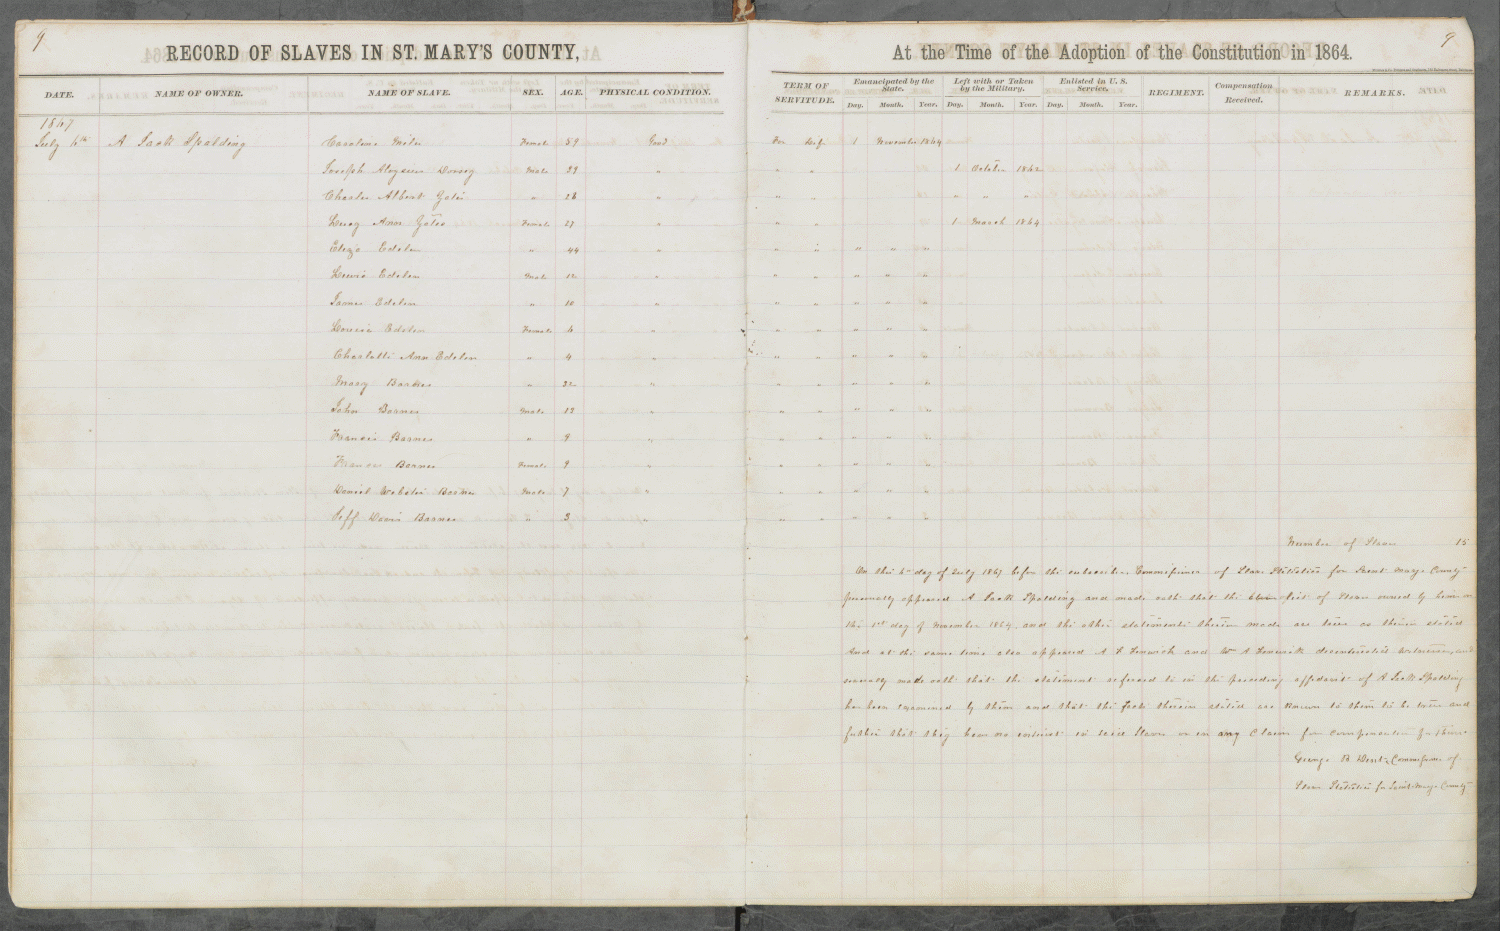 9
RECORD OF SLAVES IN ST. MARY'S COUNTY,
DATE. NAME OF OWNER. NAME OF SLAVE. SEX. AGE. PHYSICAL CONDITION.
1867
July 6th A Jack Spalding Caroline Female 59 Good
Joseph Aloysius Dorsey Male 29 "
Charles Albert Yates " 26 "
Lucy Ann Yates Female 27 "
Eliza Edelen " 44 "
Lewis Edelen Male 12 "
James Edelen " 10 "
Louisa Edelen Female 6 "
Charlotte Ann Edelen " 4 "
Mary Barnes " 32 "
John Barnes Male 13 "
Francis Barnes " 9 "
Frances Barnes Female 9 "
Daniel Webster Barnes Male 7 "
Jeff Davis Barnes " 3 "
9
At the Time of the Adoption of the Constitution in 1864.
TERM OF SERVITUDE. Emancipated by the State. Left with or Taken by the Military. Enlisted in U. S. Service. REGIMENT. Compensation Received. REMARKS.
Day. Month. Year. Day. Month. Year. Day. Month. Year.
For Life 1 November 1864
" " 1 October 1862
" " " " "
" " 1 March 1864
" " " " "
" " " " "
" " " " "
" " " " "
" " " " "
" " " " "
" " " " "
" " " " "
" " " " "
" " " " "
" " " " "
Number of Slaves 15
On this 6th day of July 1867 before the subscriber, Commissioner of Slave Statistics for Saint Marys County
personally appeared A Jack Spalding and made oath that the list of Slaves owned by him on
the 1st day of November 1864, and the other statements therein made are true as therein stated
And at the same time also appeared A F Fenwick and Wm A Fenwick disinterested witnesses, and
severally made oath that the statement referred to in the preceding affidavit of A Jack Spalding
has been examined by them and that the facts therein stated are known to them to be true and
further that they have no interest in said Slaves or in any Claim for compensation for them.
George B Dent, Commissioner of
Slave Statistics for Saint Marys County